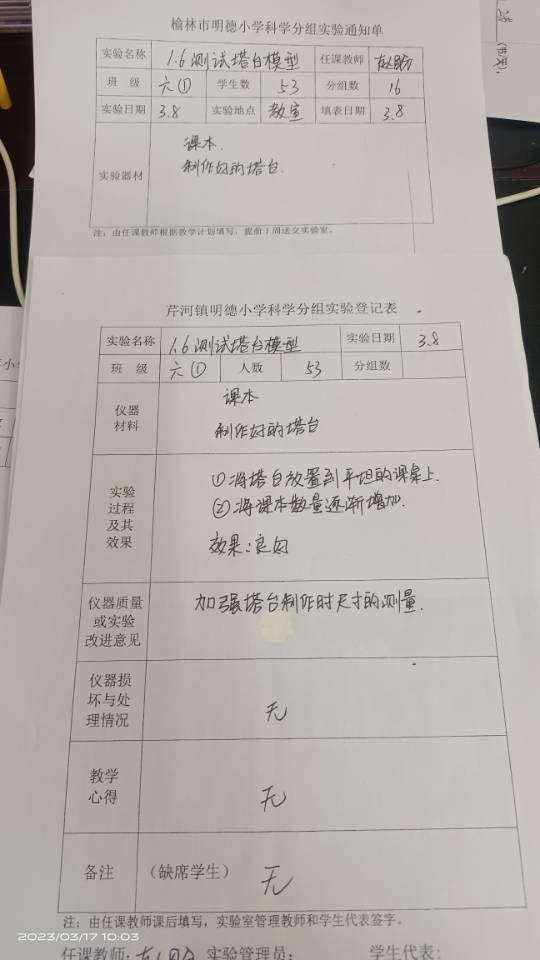 榆林市明德小学科学分组实验通知单
实验名称 1.6测试塔台模型 任课教师
班 级 六① 学生数 53 分组数 16
实验日期 3.8 实验地点 教室 填表日期 3.8
实验器材
课本.
制作好的塔台.
注：由任课教师根据教学计划填写，提前1周送交实验室。
芹河镇明德小学科学分组实验登记表
实验名称 1.6测试塔台模型 实验日期 3.8
班 级 六① 人数 53 分组数
仪器
材料
课本
制作好的塔台
实验
过程
及其
效果
①将塔台放置到平坦的课桌上.
②将课本数量逐渐增加.
效果:良好
仪器质量
或实验
改进意见
加强塔台制作时尺寸的测量.
仪器损
坏与处
理情况
无
教学
心得
无
备注 （缺席学生） 无
注：由任课教师课后填写，实验室管理教师和学生代表签字。
2023/03/17 10:03
任课教师: 实验管理员: 学生代表: